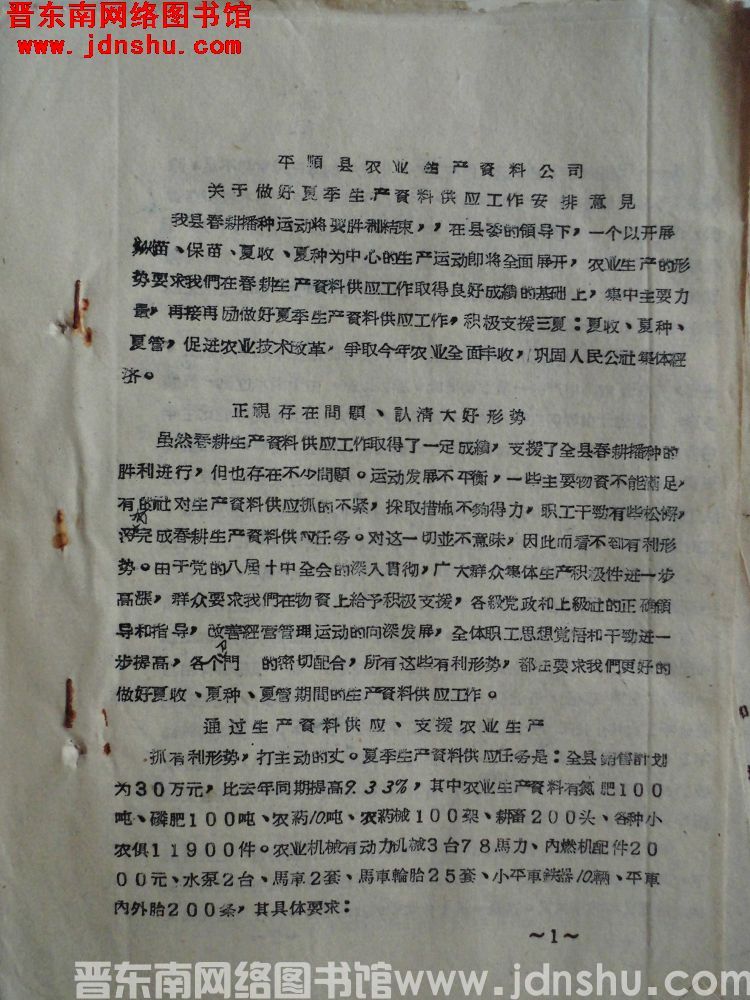 晋东南网络图书馆
www.jdnshu.com
平順县农业生产資料公司
关于做好夏季生产資料供应工作安排意見
我县春耕播种运动将要胜利結束，，在县委的領导下，一个以开展
苗、保苗、夏收、夏种为中心的生产运动即将全面展开，农业生产的形
势要求我們在春耕生产資料供应工作取得良好成績的基础上，集中主要力
量，再接再励做好夏季生产資料供应工作，积极支援三夏：夏收、夏种、
夏管，促进农业技术改革，争取今年农业全面丰收，巩固人民公社集体經
济。
正視存在問題、認清大好形势
虽然春耕生产資料供应工作取得了一定成績，支援了全县春耕播种的
胜利进行，但也存在不少問題。运动发展不平衡，一些主要物資不能滿足，
有的社对生产資料供应抓的不紧，採取措施不夠得力，职工干勁有些松懈，
沒完成春耕生产資料供应任务。对这一切並不意味，因此而看不到有利形
势。由于党的八届十中全会的深入貫彻，广大群众集体生产积极性进一步
高漲，群众要求我們在物資上給予积极支援，各級党政和上級社的正确領
导和指导，改善經营管理运动的向深发展，全体职工思想覚悟和干勁进一
步提高，各个部門 的密切配合，所有这些有利形势，都在要求我們更好的
做好夏收、夏种、夏管期間的生产資料供应工作。
通过生产資料供应、支援农业生产
抓有利形势，打主动的丈。夏季生产資料供应任务是：全县銷售計划
为30万元，比去年同期提高9.33%，其中农业生产資料有氮肥100
吨、磷肥100吨、农药10吨、农葯械100架、耕畜200头、各种小
农俱11900件。农业机械有动力机械3台78馬力、內燃机配件20
00元、水泵2台、馬車2套、馬車輪胎25套、小平車鉄器10輛、平車
內外胎200条，其具体要求：
~1~
晋东南网络图书馆www.jdnshu.com